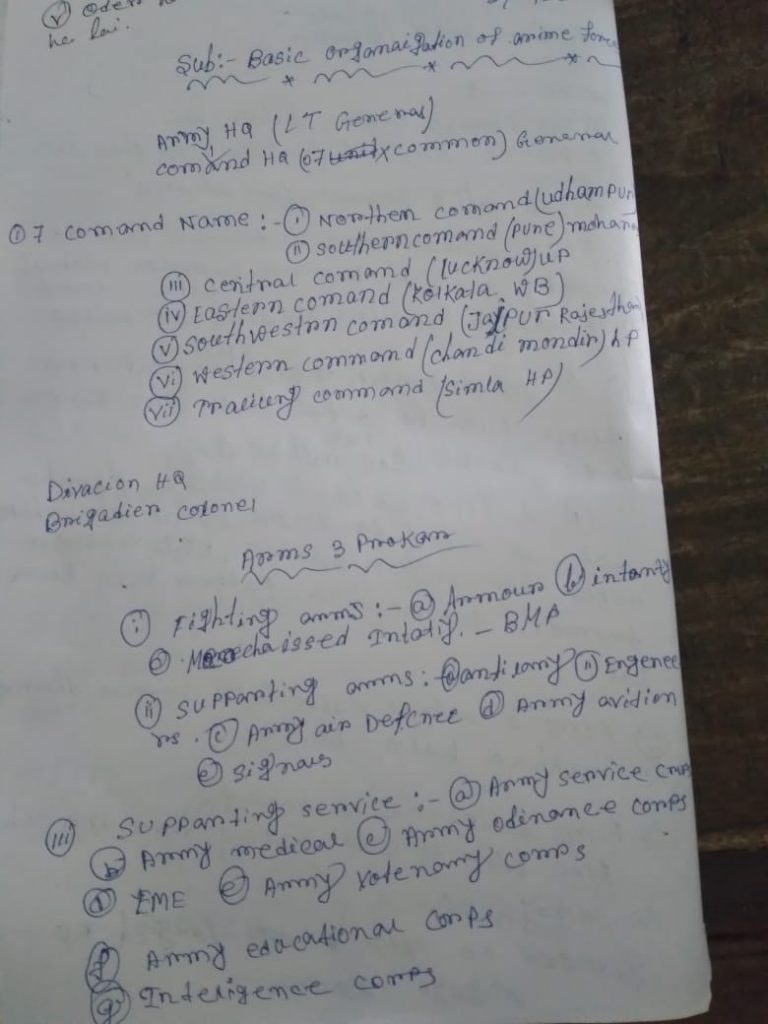 (v) Oden
he lai.
Sub:- Basic organaigation of anime force
Army HQ (LT General)
comand HQ (07 common) General
(i) 7 comand Name :- (i) Northen comand (udhampur
(ii) southern comand (pune) mahara
(iii) central comand (lucknow) UP
(iv) Eastern comand (Kolkata WB)
(v) Southwestrn comand (Jaipur Rajesthan
(vi) Western command (chandi mondir) hp
(vii) command (Simla HP)
Divacion HQ
Brigadier colonel
Arms 3 Prokar
(i) Fighting arms :- (a) Armour (b) intanty
(c) Mechaissed Intatiy. - BMP
(ii) Supporting arms :- (a) antilary (ii) Engenee
rs. (c) Army air Defence (d) Army avition
(e) signals
(iii) Supporting service :- (a) Army service corps
(b) Army medical (c) Army odinance corps
(d) EME (e) Army votenary corps
(f) Army educational corps
(g) Inteligence corps